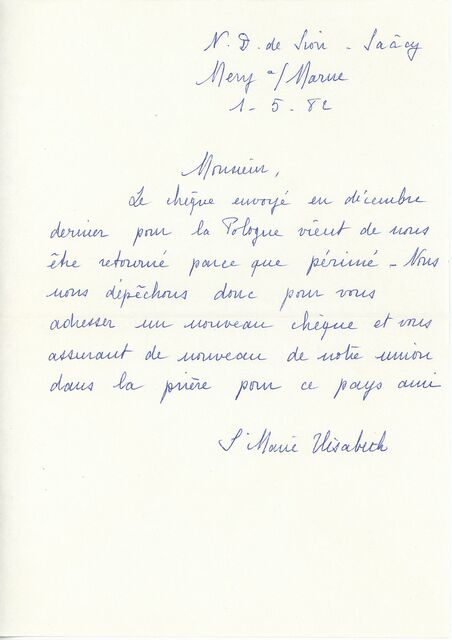 N. D. de Sion - Saâcy
Mery s/ Marne
1 - 5 - 82
Monsieur,
Le chèque envoyé en décembre
dernier pour la Pologne vient de nous
être retourné parce que périmé - Nous
nous dépêchons donc pour vous
adresser un nouveau chèque et vous
assurant de nouveau de notre union
dans la prière pour ce pays ami
Sr Marie Elisabeth